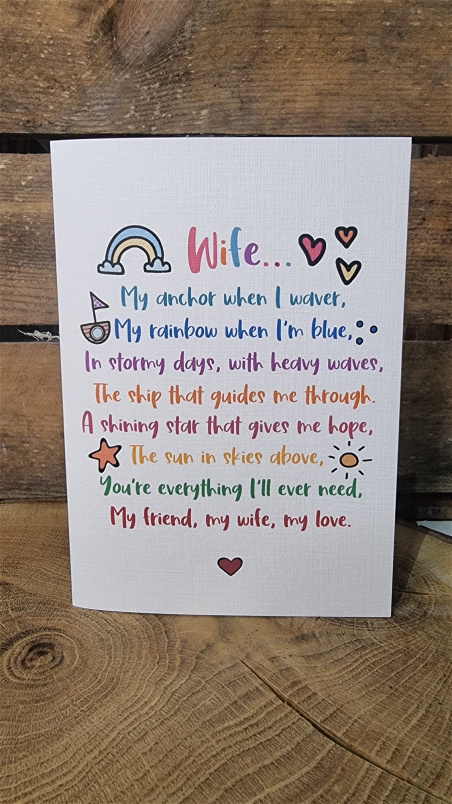 Wife...
My anchor when I waver,
My rainbow when I'm blue,
In stormy days, with heavy waves,
The ship that guides me through.
A shining star that gives me hope,
The sun in skies above,
You're everything I'll ever need,
My friend, my wife, my love.